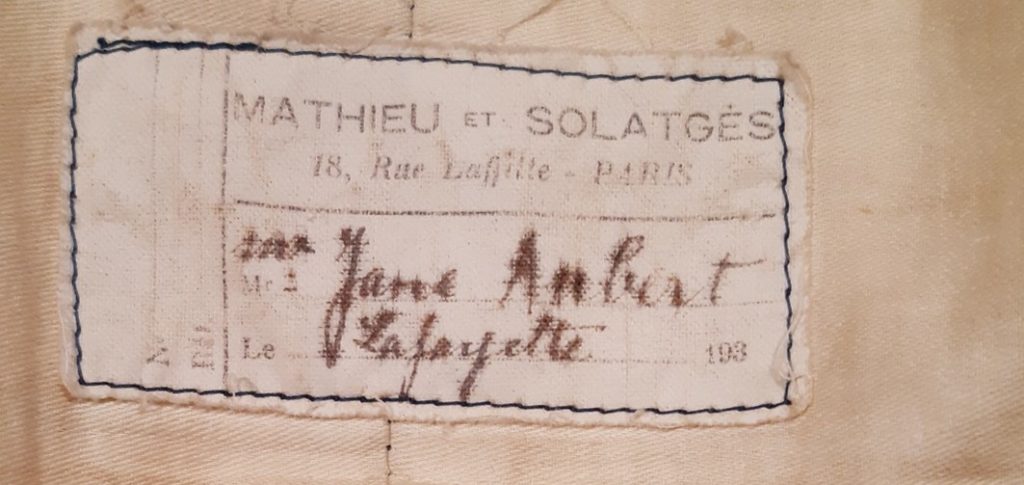 MATHIEU ET SOLATGÉS
18, Rue Laffitte - PARIS
Mr Jane Aubert
Lafayette
Le 193
N